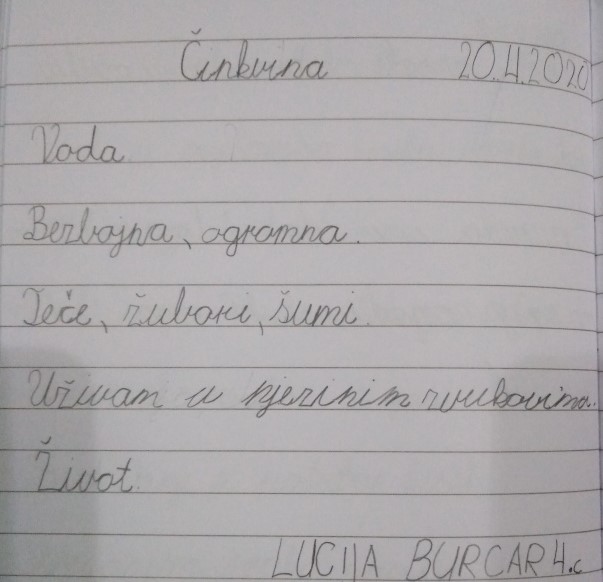 Činkvina 20.4.2020
Voda
Bezbojna, ogromna.
Teče, žubori, šumi.
Uživam u njezinim zvukovima.
Život.
LUCIJA BURCAR 4.c